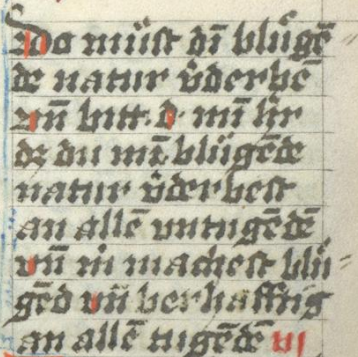 Do müst dī blügē
de natur v̊derbē
vn̄ bitt d mī h̄r
dz du mī blügēde
natur v̊derbest
an allē vntugēdē
vn̄ m̊ machest blü=
gēd vn̄ berhafftig
an allē tugēdē